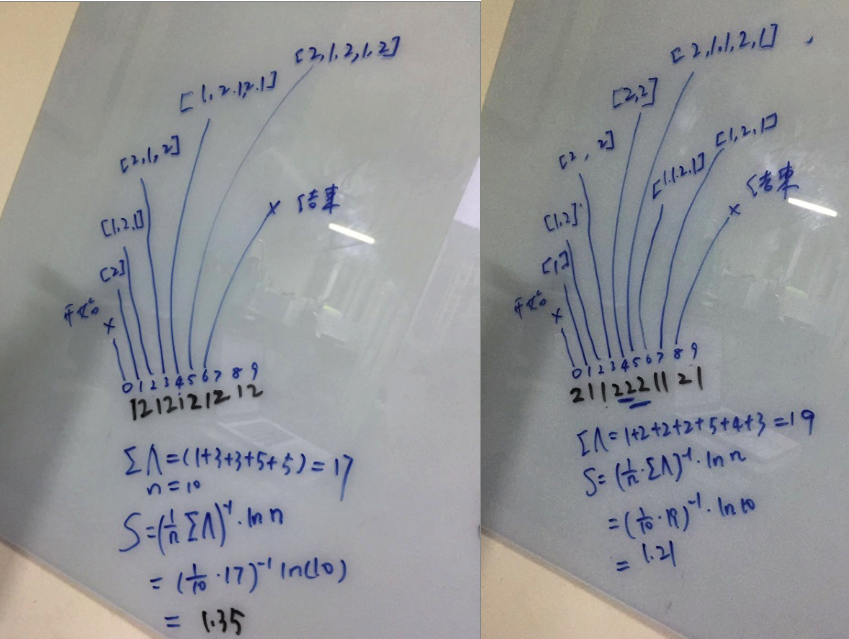 [2,1,2,1,2]
[1,2,1,2,1]
[2,1,2]
[1,2,1]
[2]
开始
×
× 结束
0 1 2 3 4 5 6 7 8 9
12 12 12 12 12
ΣΛ=(1+3+3+5+5)=17
n=10
S=(1/n ΣΛ)⁻¹·ln n
=(1/10·17)⁻¹ ln(10)
= 1.35
[2,1,1,2,1]
[2,2]
[2, 2]
[1,2,1]
[1,1,2,1]
[1,2]
[1]
× 结束
开始
×
0 1 2 3 4 5 6 7 8 9
2 1 1 2 2 2 1 1 2 1
ΣΛ=1+2+2+2+5+4+3=19
S=(1/n·ΣΛ)⁻¹·ln n
=(1/10·19)⁻¹·ln10
= 1.21